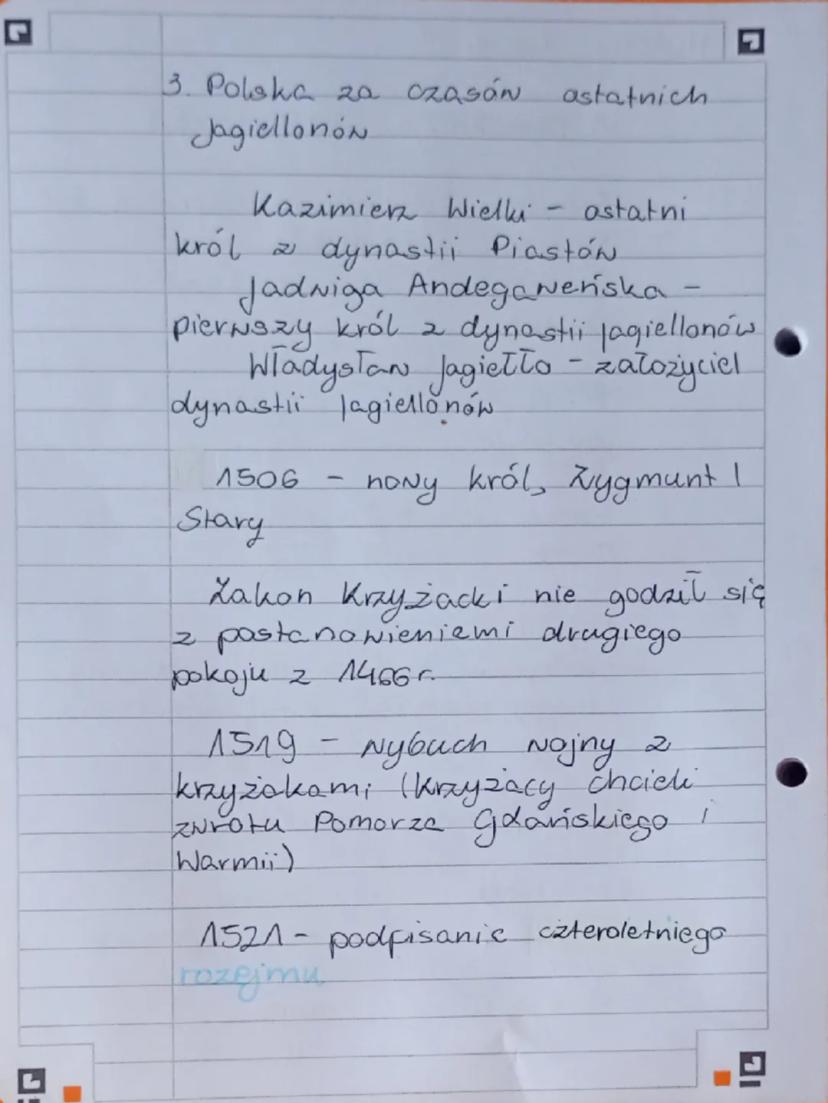 3. Polska za czasów ostatnich
Jagiellonów
Kazimierz Wielki - ostatni
król z dynastii Piastów
Jadwiga Andegaweńska -
pierwszy król z dynastii Jagiellonów
Władysław Jagiełło - założyciel
dynastii Jagiellonów
1506 - nowy król, Zygmunt I
Stary
Zakon Krzyżacki nie godził się
z postanowieniami drugiego
pokoju z 1466 r.
1519 - wybuch wojny z
krzyżakami (Krzyżacy chcieli
zwrotu Pomorza Gdańskiego i
Warmii)
1521 - podpisanie czteroletniego
rozejmu